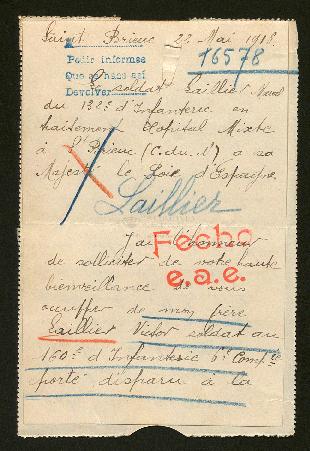 Saint Brieuc 22 Mai 1918.
16578
Pedir informes
Que se hace así
Devolver
soldat Laillier
du 132e d'Infanterie en
traitement Hopital Mixte
à St Brieuc (C.du.N) a sa
Majesté le Roi d'Espagne
Laillier
J'ai l'honneur
de solliciter de votre haute
bienveillance de vous
occuper de mon frère
Laillier Victor soldat au
160e d'Infanterie 6e Compie
porté disparu à la
Fecho
e.a.e.